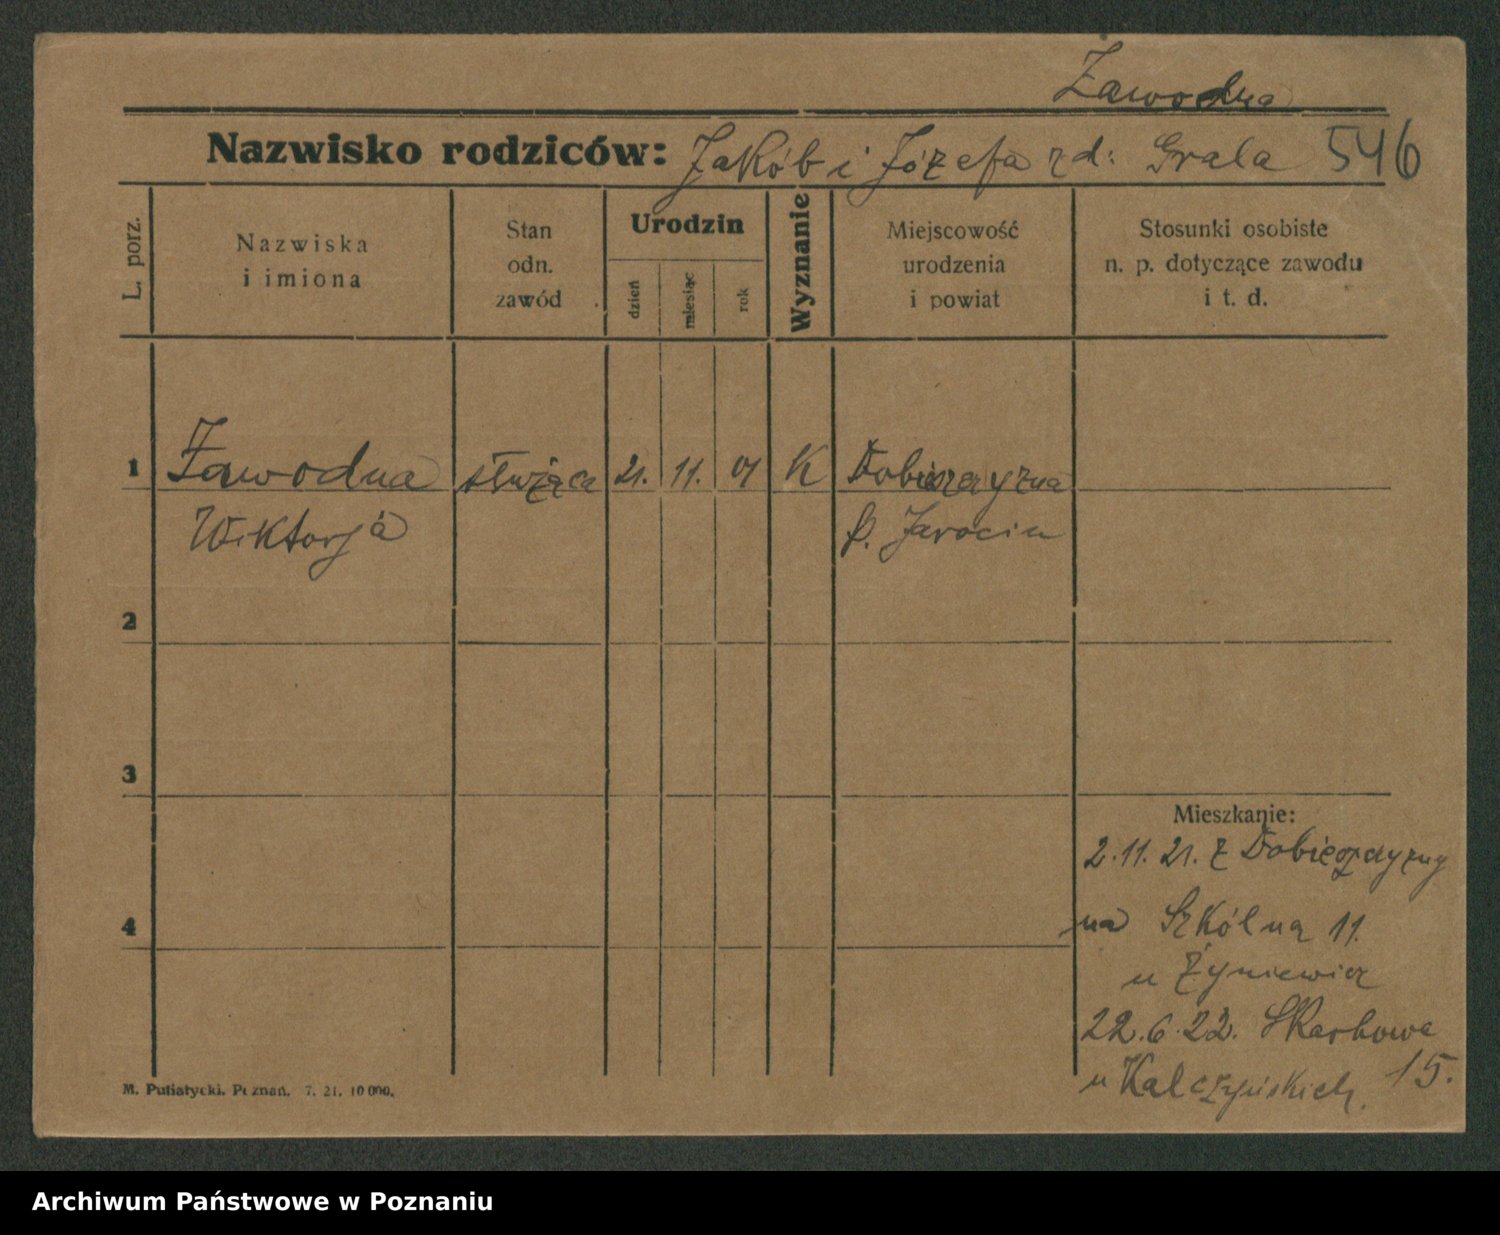 Zawodna
Nazwisko rodziców: Jakób i Józefa zd: Grala 546
L. porz.
Nazwiska
i imiona
Stan
odn.
zawód
Urodzin
dzień
miesiąc
rok
Wyznanie
Miejscowość
urodzenia
i powiat
Stosunki osobiste
n. p. dotyczące zawodu
i t. d.
1 Zawodna służąca 21. 11. 01 K
Wiktorja p. Jarocin
2
3
4
Mieszkanie:
2.11.21. z
na Szkólną 11.
u Żyniewicz
22.6.22. Skarbowa
u Kalczyńskich. 15.
M. Putiatycki. Poznań. 7. 21. 10 000.
Archiwum Państwowe w Poznaniu